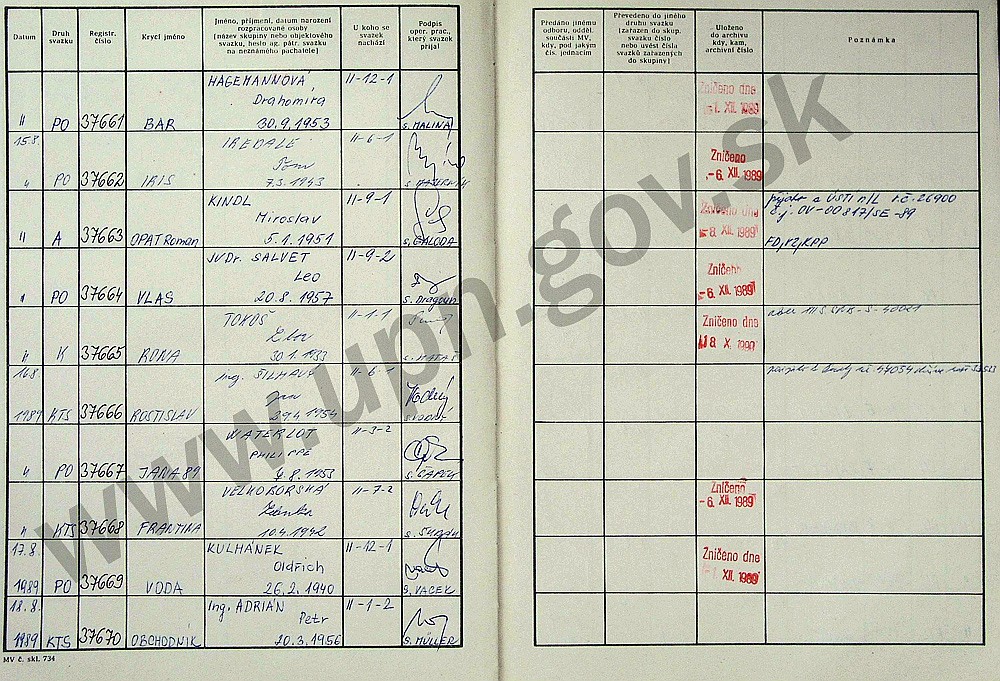 Datum
Druh
svazku
Registr.
číslo
Krycí jméno
Jméno, příjmení, datum narození
rozpracované osoby
[název skupiny nebo objektového
svazku, heslo ag. pátr. svazku
na neznámého pachatele]
U koho se
svazek
nachází
Podpis
oper. prac.,
který svazek
přijal
Předáno jinému
odboru, odděl.
součásti MV,
kdy, pod jakým
čís. jednacím
Převedeno do jiného
druhu svazku
[zařazen do skup.
svazku číslo
nebo uvést čísla
svazků zařazených
do skupiny]
Uloženo
do archivu
kdy, kam,
archivní číslo
Poznámka
HAGEMANNOVÁ II-12-1
Drahomíra
II PO 37661 BAR 30.9.1953 s. MALINA
Zničeno dne
-1. XII. 1989
15.8. IREDALE II-6-1
Tom
II PO 37662 IRIS 7.3.1943
Zničeno
-6. XII. 1989
KINDL II-9-1
Miroslav
II A 37663 OPAT Roman 5.1.1951 s. GALODA
Zničeno dne
-8. XII. 1989
ÚSTÍ n/L č. 26900
č.j. OV-00817/SE-89
JUDr. SALVET II-9-2
Leo
II PO 37664 VLAS 20.8.1957 s. Dragoun
Zničeno
-6. XII. 1989
II-1-1
II K 37665 RONA 30.1.1933 s. MATAŠ
Zničeno dne
18. X. 1990
16.8. Ing. II-6-1
Jan
1989 KTS 37666 ROSTISLAV 29.4.1954
WATERLOT II-3-2
PHILIPPE
II PO 37667 JANA 89 8.1953 s. ČAPEK
VELKOBORSKÁ II-7-2
Zdenka
II KTS 37668 FRANTINA 10.4.1942
Zničeno
-6. XII. 1989
17.8. KULHÁNEK II-12-1
Oldřich
1989 PO 37669 VODA 26.2.1940 s. VACEK
Zničeno dne
-1. XII. 1989
18.8. Ing. ADRIÁN II-1-2
Petr
1989 KTS 37670 OBCHODNÍK 20.3.1956 s. MÜLLER
MV č. skl. 734
www.upn.gov.sk